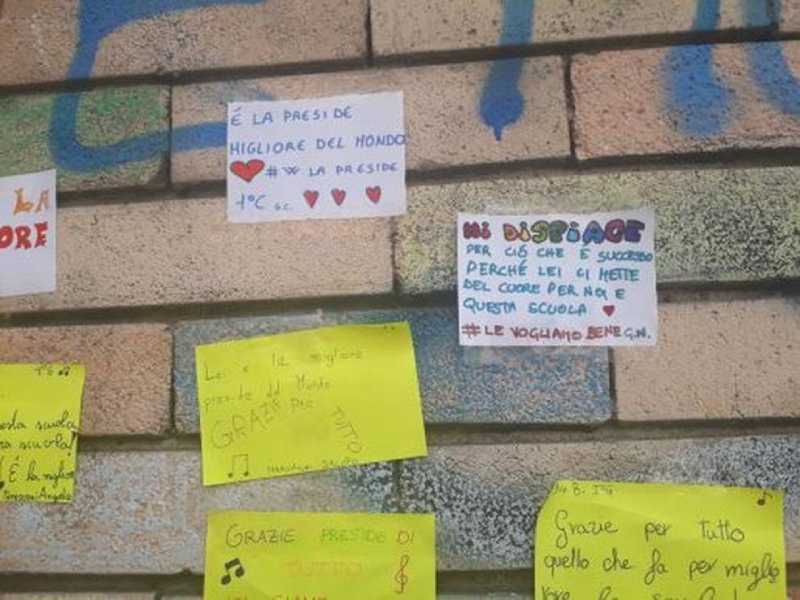 É LA PRESIDE
MIGLIORE DEL MONDO
# W LA PRESIDE
1°C G.C.
LA
ORE
MI DISPIACE
PER CIÓ CHE É SUCCESSO
PERCHÉ LEI CI METTE
DEL CUORE PER NOI E
QUESTA SCUOLA.
# LE VOGLIAMO BENE G.N.
Lei è la migliore
preside del Mondo
GRAZIE PER
TUTTO
esta scuola
ra scuola!
É la miglior
GRAZIE PRESIDE DI
TUTTO
Grazie per tutto
quello che fa per miglio
rare la scuola!